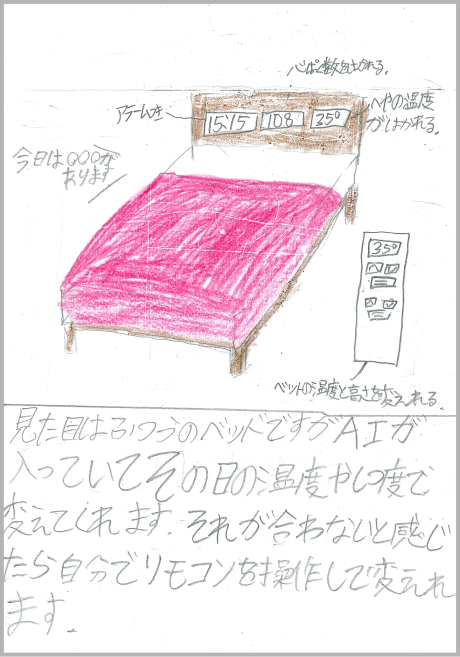 心ぱく数をはかれる。
アラームつき
15:15
108
35°
へやの温度
がはかれる。
今日は〇〇〇が
あります
35°
ベットの温度と高さを変えれる。
見た目はふつうのベッドですがAIが
入っていてその日の温度やしつ度で
変えてくれます。それが合わないと感じ
たら自分でリモコンを操作して変えれ
ます。